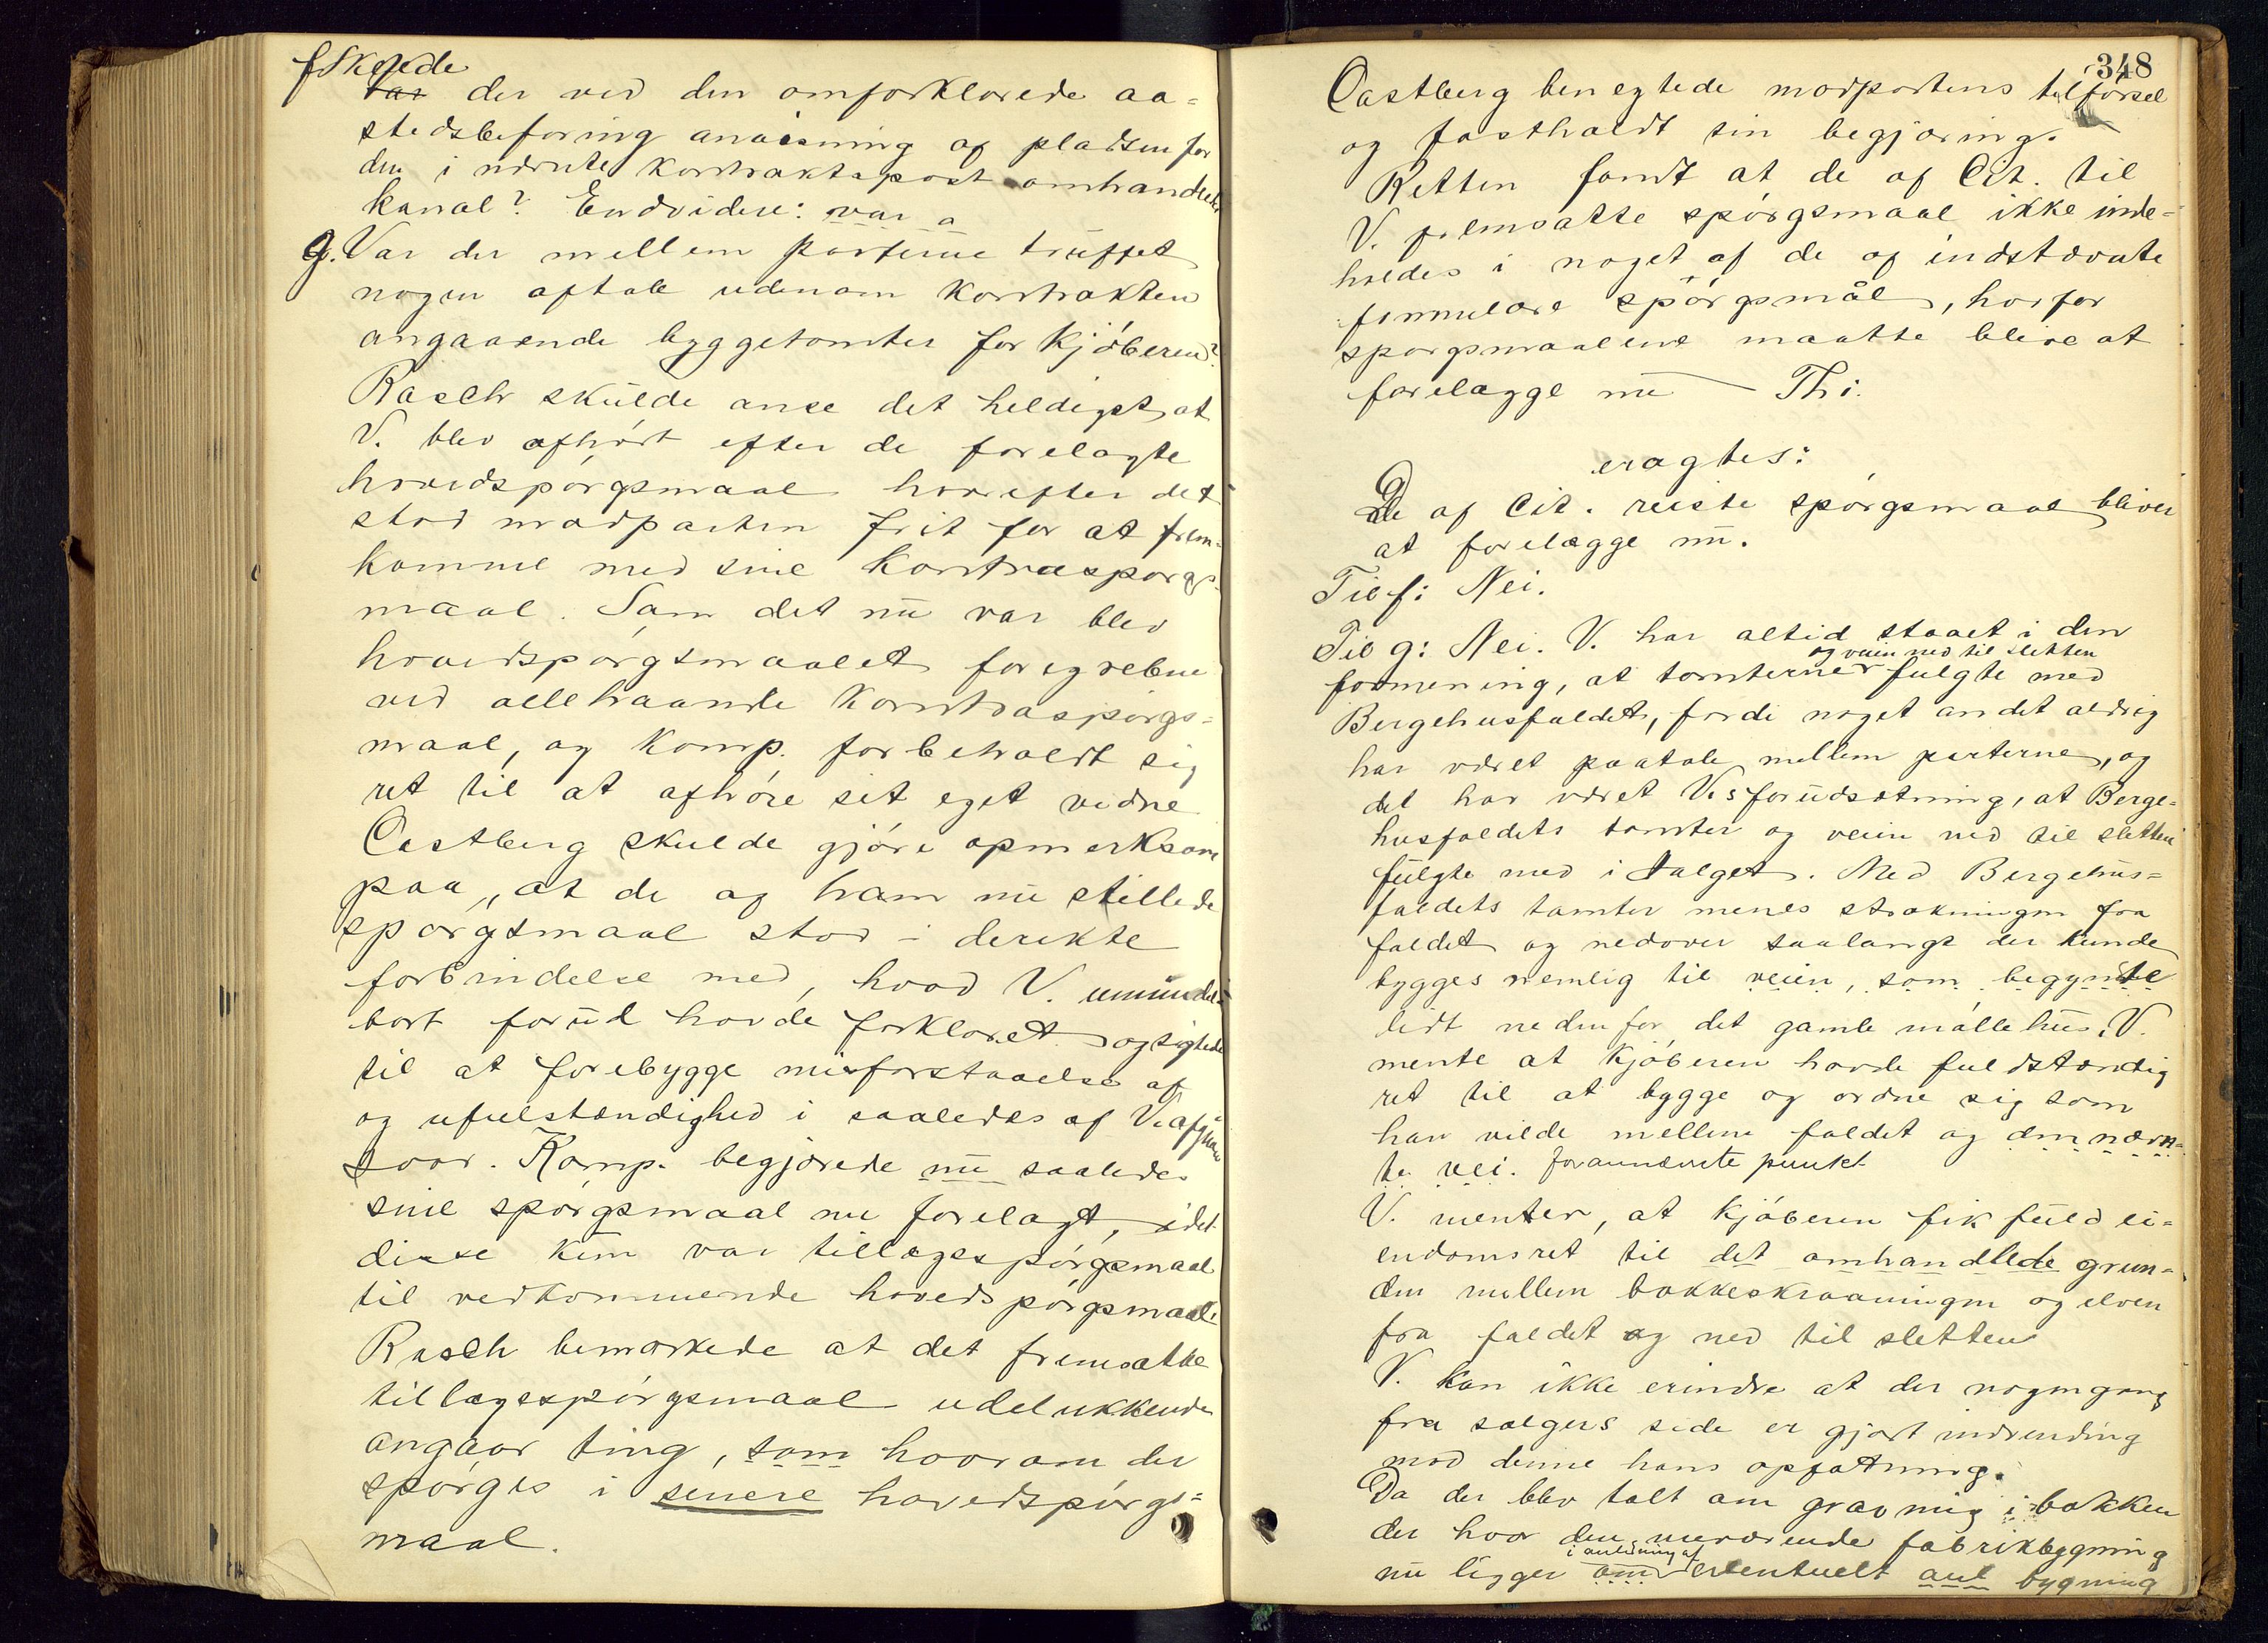 f Skede
var der ved den omforklarede aa=
stedsbefaring anvisning af pladsen for
den i nævnte kontraktspost omhandlede
kanal? Endvidere: var a
g. Var der mellem parterne truffet
nogen aftale udenom kontrakten
angaaende byggetomter for kjøberen?
Rasch skulde anse det heldigst at
V. blev afhørt efter de forelagte
hovedspørgsmaal hvorefter det
stod modparten frit for at frem=
komme med sine kontraspørgs=
maal. Som det nu var blev
hovedspørgsmaalet foregrebne
ved allehaande kontraspørgs=
maal, og komp. forbeholdt sig
ret til at afhøre sit eget vidne
Castberg skulde gjøre opmerksom
paa, at de af ham nu stillede
spørgsmaal stod i derekte
forbindelse med, hvad V. umiddel=
bart forud havde forklaret og sigtede
til at forebygge misforstaaelse af
og ufulstændighed i saaledes af V. afgivne
svar. Komp. begjærede nu saaledes
sine spørgsmaal nu forelagt, idet
disse kun var tillægsspørgsmaal
til vedkommende hovedspørgsmaal.
Rasch bemærkede at det fremsatte
tillægsspørgsmaal udelukkende
angaar ting, som hvorom der
spørges i senere hovedspørgs=
maal.
348
Castberg benegtede modpartens tilførsel
og fastholdt sin begjæring.
Retten fandt at de af Cit. til
V. fremsatte spørgsmaal ikke inde=
holdes i noget af de af indstævnte
formulere spørgsmål, hvorfor
spørgsmaalene maatte blive at
forelægge nu — Thi.
eragtes:
De af Cit. reiste spørgsmaal bliver
at forelægge nu.
Til f: Nei.
Til g: Nei. V. har altid staaet i den
og veien ned til sletten
formening, at tomterne fulgte med
Bergehusfaldet, fordi noget andet aldrig
har været paatale mellem parterne, og
det har været V.s forudsætning, at Berge=
husfaldets tomter og veien ned til sletten
fulgte med i salget. Med Bergehus=
faldets tomter menes strækningen fra
faldet og nedover saalangt der kunde
bygges nemlig til veien, som begyndte
lidt nedenfor det gamle møllehus. V.
mente at kjøberen havde fuldstændig
ret til at bygge og ordne sig som
han vilde mellem faldet og den nævn=
te vei. forannævnte punkt
V. mente, at kjøberen fik fuld ei=
endomsret til det omhandlede grun=
den mellem bakkeskraaningen og elven
fra faldet og ned til sletten
V. kan ikke erindre at der nogengang
fra sælgers side er gjort indvending
mod denne hans opfatning.
Da der blev talt om gravning i bakken
der hvor den nuværende fabrikbygning
i anledning af
nu ligger om eventuelt anl bygning